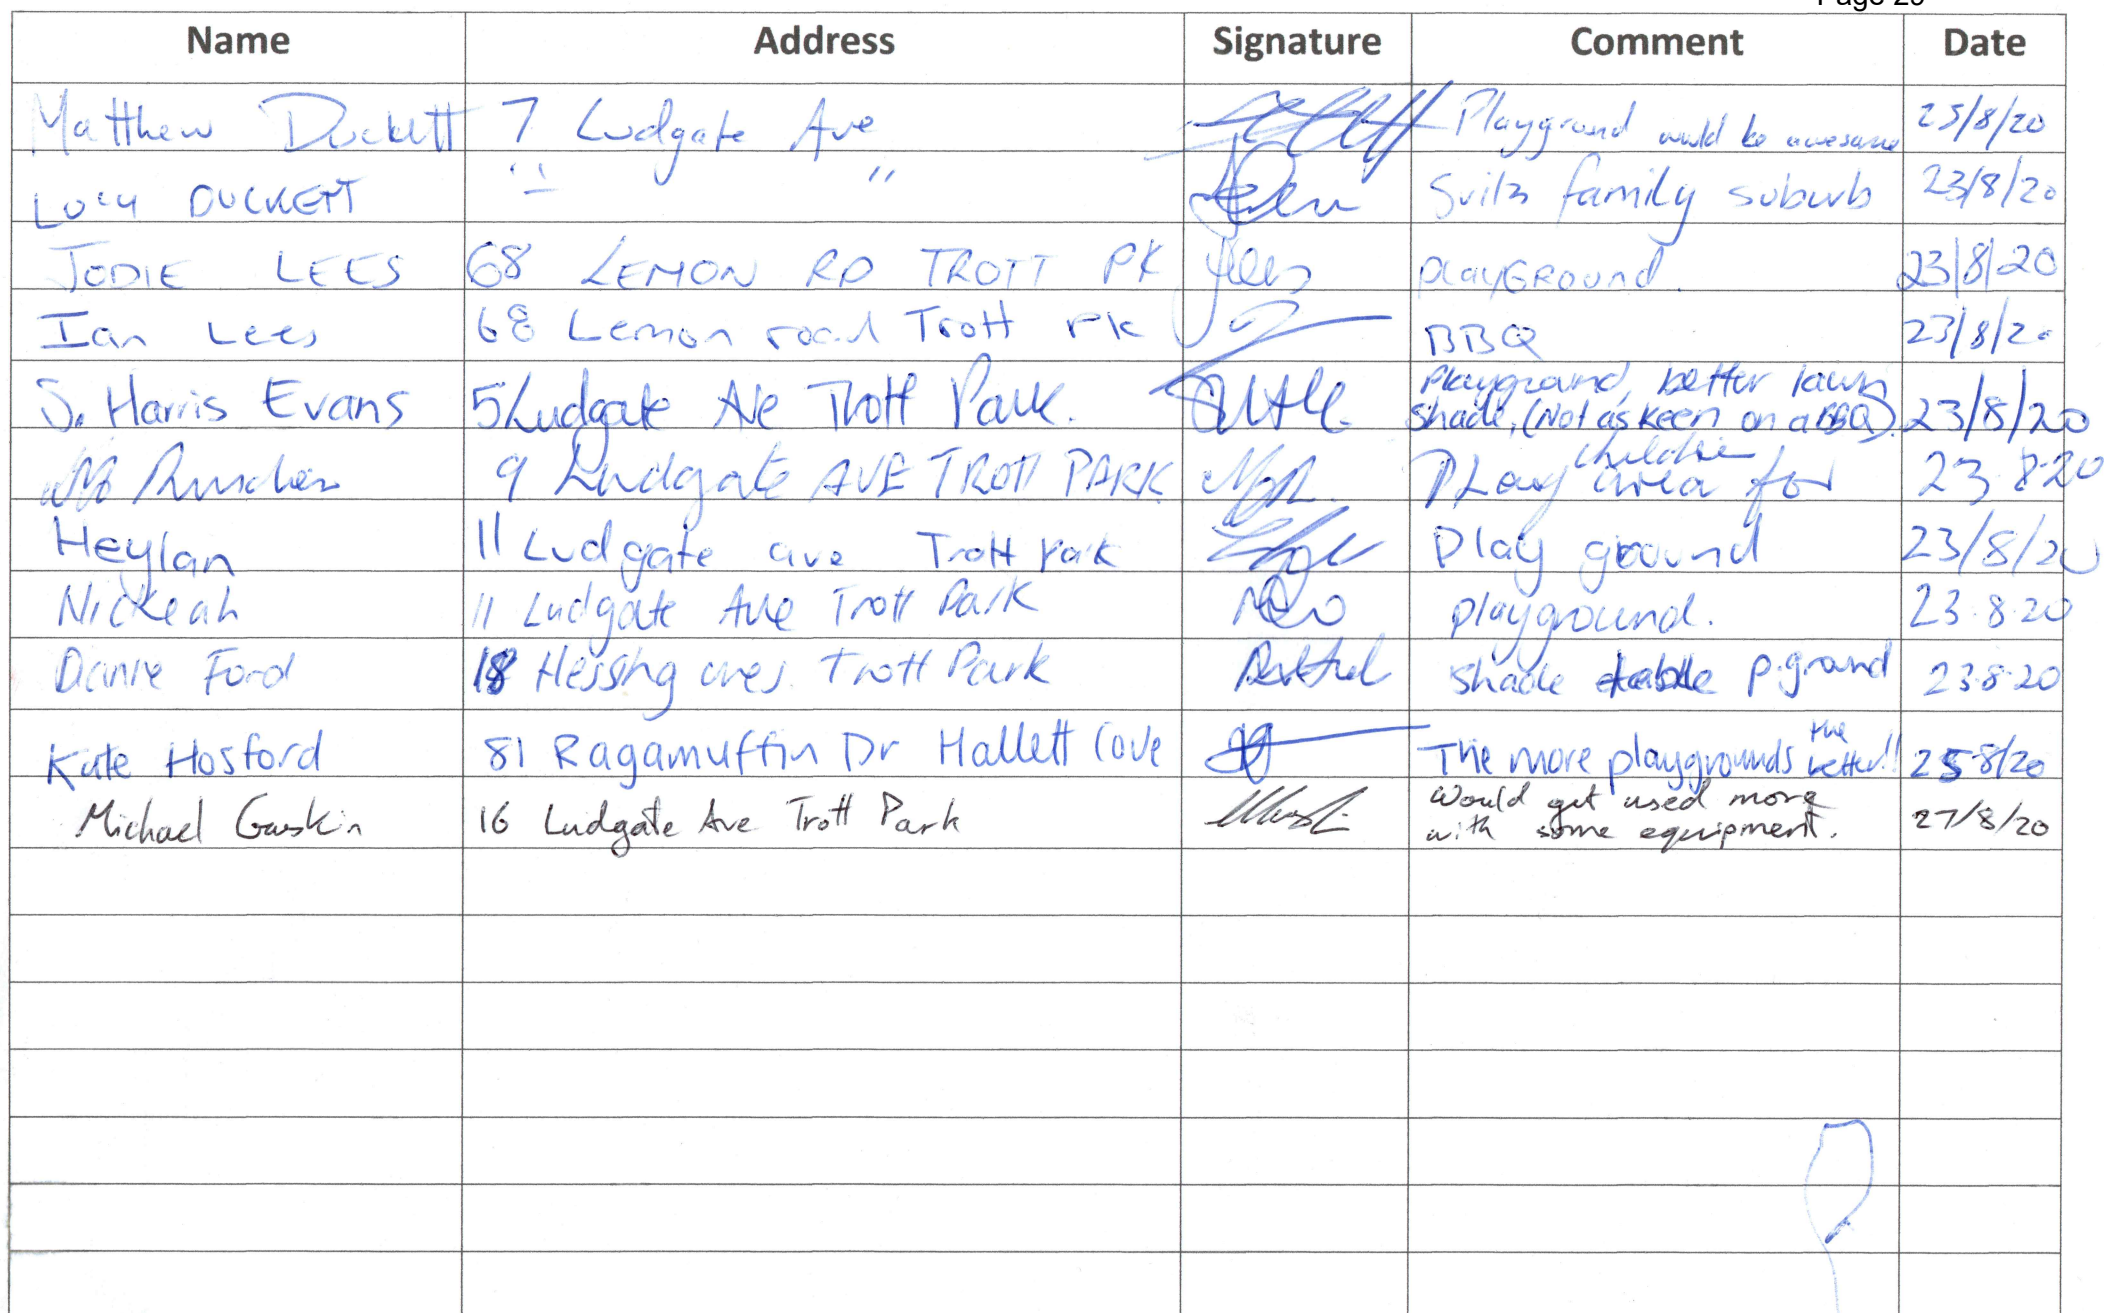 Name Address Signature Comment Date
Matthew Duckett 7 Ludgate Ave Playground would be awesome 23/8/20
Lucy DUCKETT " " Suits family suburb 23/8/20
JODIE LEES 68 LEMON RD TROTT PK JLees PlayGRound. 23/8/20
Ian Lees 68 Lemon road Trott Pk BBQ 23/8/20
S. Harris Evans 5 Ludgate Ave Trott Park. Playground, better lawn
shade, (Not as keen on a BBQ). 23/8/20
9 Ludgate AVE TROTT PARK PLay area for children 23.8.20
Heylan 11 Ludgate ave Trott Park Play ground 23/8/20
Nickeah 11 Ludgate Ave Trott Park playground. 23.8.20
Danie Ford 18 Hessing cres. Trott Park Shade table p.ground 23.8.20
Kate Hosford 81 Ragamuffin Dr Hallett Cove The more playgrounds the better!! 25/8/20
Michael Gaskin 16 Ludgate Ave Trott Park Would get used more
with some equipment. 27/8/20